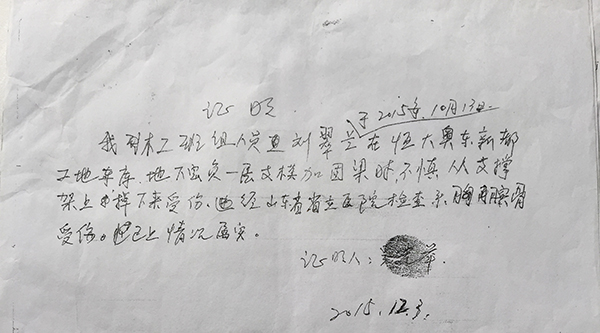 证明
于2015年10月13日
我到木工班组人员 刘翠兰在恒大奥东新都
工地车库地下室负一层支模加固梁时不慎从支撑
架上 掉下来受伤。 经山东省省立医院检查示胸 骨
受伤。 以上情况属实。
证明人:
2015.12.3.